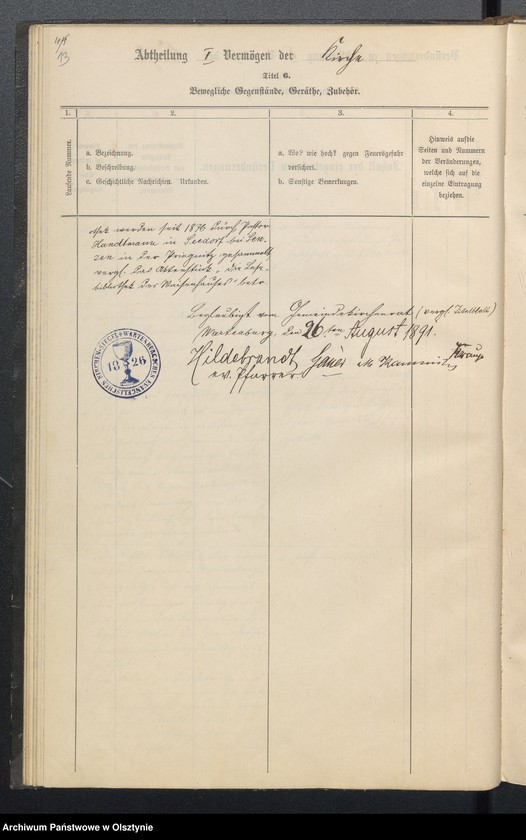 44
13
Abtheilung I Vermögen der Kirche
Titel 6.
Bewegliche Gegenstände, Geräthe, Zubehör.
1. 2. 3. 4.
Laufende Nummer.
a. Bezeichnung.
b. Beschreibung.
c. Geschichtliche Nachrichten. Urkunden.
a. Wo? wie hoch? gegen Feuersgefahr
versichert.
b. Sonstige Bemerkungen.
Hinweis auf die
Seiten und Nummern
der Veränderungen,
welche sich auf die
einzelne Eintragung
beziehen.
othek werden seit 1876 durch Pastor
Handtmann in Seedorf bei Len-
zen in der Priegnitz gesammelt
vergl. das Aktenstück „die Lese-
bibliothek des Waisenhauses" betr.
Beglaubigt vom Gemeindekirchenrat (vergl. Titelblatt)
Wartenburg, den 26ten August 1891.
Hildebrandt
ev. Pfarrer
1826
Archiwum Państwowe w Olsztynie